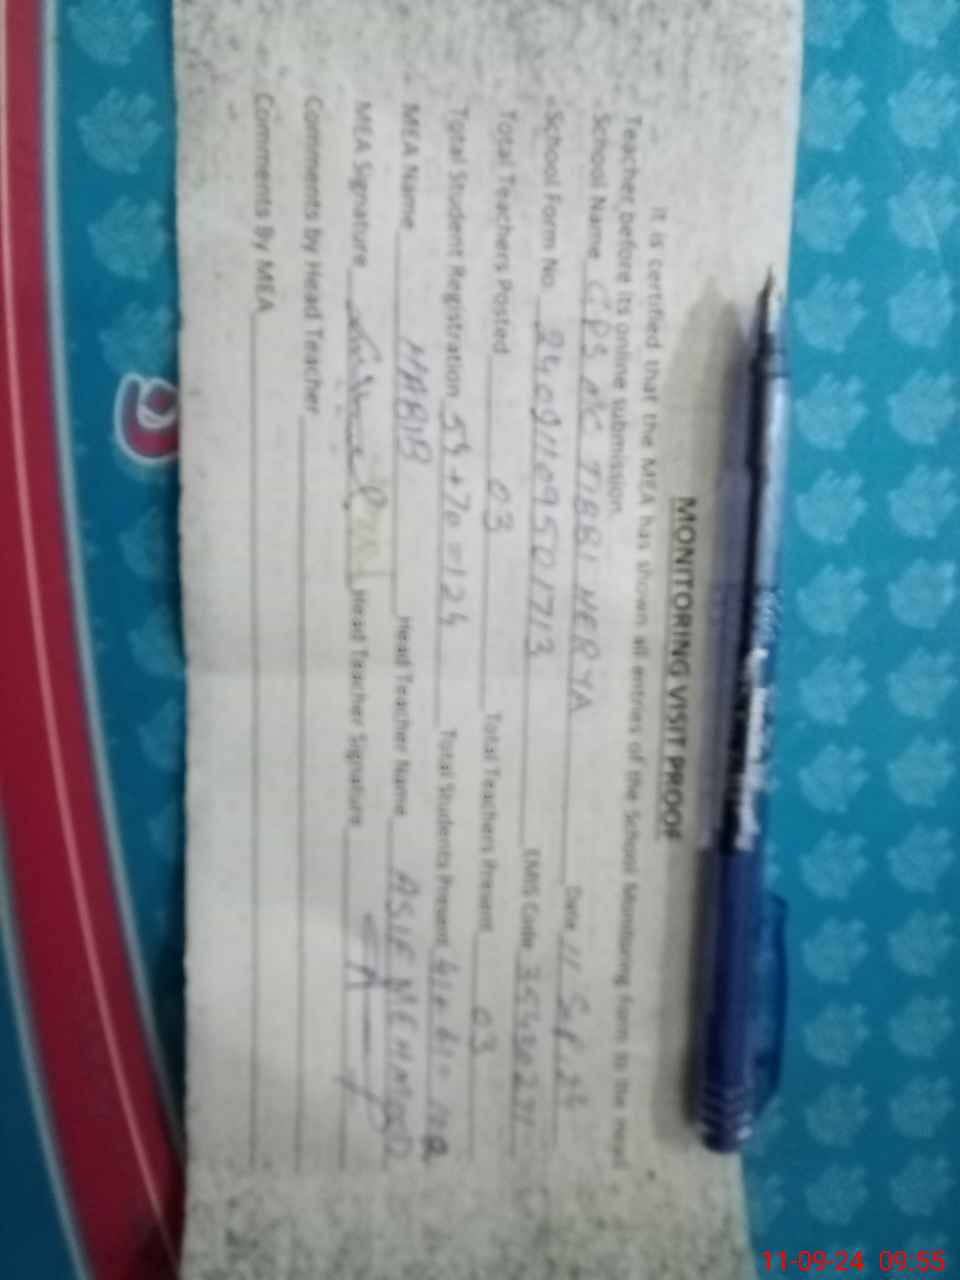 MONITORING VISIT PROOF
It is certified that the MEA has shown all entries of the School Monitoring form to the Head
Teacher before its online submission.
School Name GPS NC TIBBI NERYA Date 11 Sep. 24
School Form No 24091109501713 EMIS Code
Total Teachers Posted 03 Total Teachers Present 03
Total Student Registration 54+70=124 Total Students Present 41+61=102
MEA Name HABIB Head Teacher Name ASIF MEHMOOD
MEA Signature Head Teacher Signature
Comments by Head Teacher
Comments By MEA
11-09-24 09:55